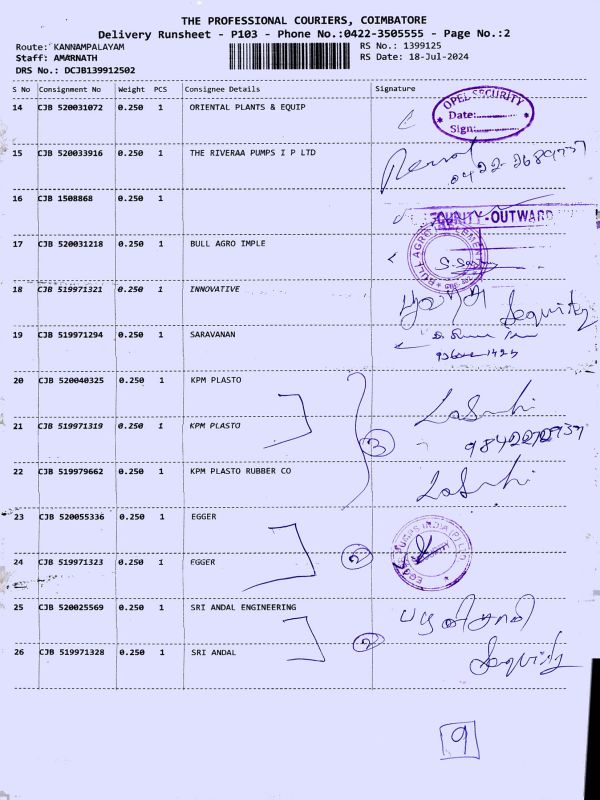 THE PROFESSIONAL COURIERS, COIMBATORE
Delivery Runsheet - P103 - Phone No.:0422-3505555 - Page No.:2
Route: KANNAMPALAYAM RS No.: 1399125
Staff: AMARNATH RS Date: 18-Jul-2024
DRS No.: DCJB139912502
S No Consignment No Weight PCS Consignee Details Signature
14 CJB 520031072 0.250 1 ORIENTAL PLANTS & EQUIP
OPEL SECURITY
Date:
Sign:
15 CJB 520033916 0.250 1 THE RIVERAA PUMPS I P LTD
16 CJB 1508868 0.250 1
SECURITY-OUTWARD
17 CJB 520031218 0.250 1 BULL AGRO IMPLE
18 CJB 519971321 0.250 1 INNOVATIVE
19 CJB 519971294 0.250 1 SARAVANAN
20 CJB 520040325 0.250 1 KPM PLASTO
21 CJB 519971319 0.250 1 KPM PLASTO
3
22 CJB 519979662 0.250 1 KPM PLASTO RUBBER CO
23 CJB 520055336 0.250 1 EGGER
2
24 CJB 519971323 0.250 1 EGGER
25 CJB 520025569 0.250 1 SRI ANDAL ENGINEERING
2
26 CJB 519971328 0.250 1 SRI ANDAL
9